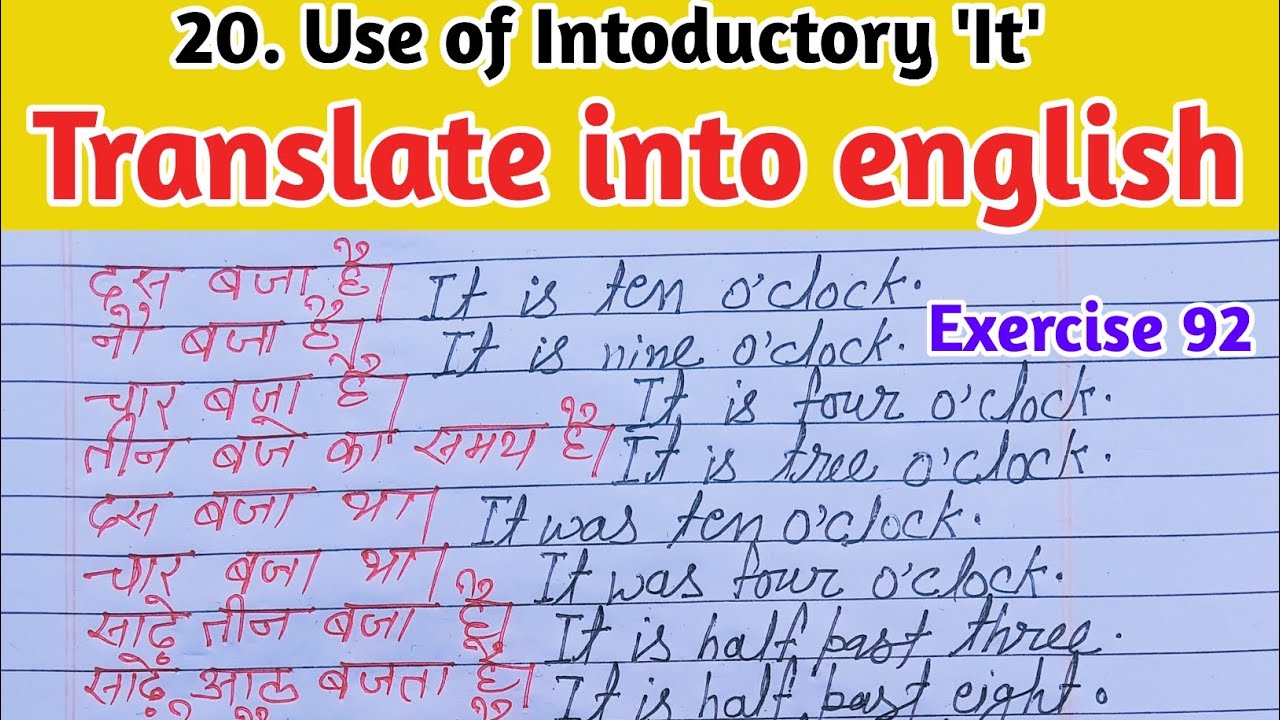 20. Use of Intoductory 'It'
Translate into english
दस बजा है। It is ten o'clock.
नौ बजा है। It is nine o'clock. Exercise 92
चार बजा है। It is four o'clock.
तीन बजे का समय है। It is tree o'clock.
दस बजा था। It was ten o'clock.
चार बजा था। It was four o'clock.
साढ़े तीन बजा है। It is half past three.
साढ़े आठ बजता है। It is half past eight.